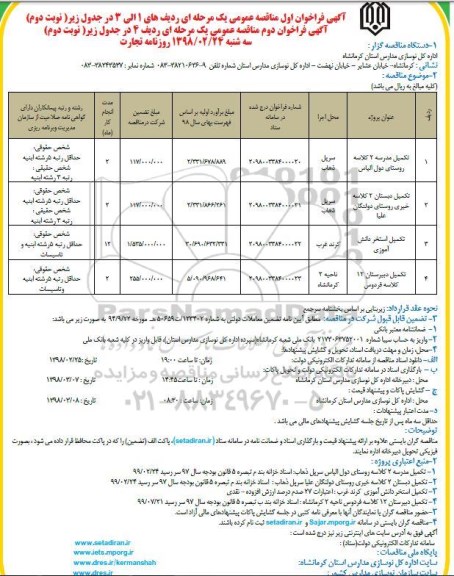 آگهی فراخوان اول مناقصه عمومی یک مرحله ای ردیف های ۱ الی ۳ در جدول زیر( نوبت دوم)
آگهی فراخوان دوم مناقصه عمومی یک مرحله ای ردیف ۴ در جدول زیر( نوبت دوم)
سه شنبه ۱۳۹۸/۰۲/۲۴ روزنامه تجارت
۱-دستگاه مناقصه گزار :
اداره کل نوسازی مدارس استان کرمانشاه
نشانی : کرمانشاه- خیابان عشایر – خیابان نهضت – اداره کل نوسازی مدارس استان شماره تلفن ۹-۰۸۳-۳۸۲۱۰۶۲۶ شماره نمابر : ۰۸۳-۳۸۲۴۲۵۳۷
۲-موضوع مناقصه :
(کلیه مبالغ به ریال می باشد)
ردیف
عنوان پروژه
محل اجرا
شماره فراخوان درج شده در سامانه ستاد
مبلغ برآورد اولیه بر اساس فهرست بهای سال ۹۸
مبلغ تضمین شرکت در مناقصه
مدت انجام کار (ماه)
رشته و رتبه پیمانکاران دارای گواهی نامه صلاحیت از سازمان مدیریت وبرنامه ریزی
۱
تکمیل مدرسه ۲ کلاسه روستای دول الیاس
سرپل ذهاب
۲۰۹۸۰۰۳۳۸۴۰۰۰۰۲۰
۲/۳۳۱/۶۷۸/۸۸۹
۱۱۷/۰۰۰/۰۰۰
۲
شخص حقوقی: حداقل رتبه ۵رشته ابنیه شخص حقیقی : رتبه ۳ رشته ابنیه
۲
تکمیل دبستان ۲ کلاسه خیری روستای دولتکان علیا
سرپل ذهاب
۲۰۹۸۰۰۳۳۸۴۰۰۰۰۲۱
۲/۳۳۱/۸۶۶/۲۶۱
۱۱۷/۰۰۰/۰۰۰
۲
شخص حقوقی: حداقل رتبه ۵رشته ابنیه شخص حقیقی : رتبه ۳رشته ابنیه
۳
تکمیل استخر دانش آموزی
گیلانغرب
۲۰۹۸۰۰۳۳۸۴۰۰۰۰۲۲
۳۰/۶۹۰/۶۳۲/۳۳۱
۱/۵۳۵/۰۰۰/۰۰۰
۱۲
شخص حقوقی: حداقل رتبه ۵رشته ابنیه و تاسیسات
۴
تکمیل دبیرستان ۱۲ کلاسه فردوس
ناحیه ۲ کرمانشاه
۲۰۹۸۰۰۳۳۸۴۰۰۰۰۲۳
۵/۰۹۰/۹۶۸/۶۴۱
۲۵۵/۰۰۰/۰۰۰
۲
شخص حقوقی: حداقل رتبه ۵رشته ابنیه وتاسیسات
نحوه عقد قرارداد: زیربنایی بر اساس بخشنامه سرجمع
۳-تضمین قابل قبول شرکت در مناقصه: مطابق آیین نامه تضمین معاملات دولتی به شماره ۱۲۳۴۰۲/ت۵۰۶۵۹ه مورخه ۹۴/۹/۲۲ به صورت زیر می باشد:
۱- ضمانتنامه معتبر بانکی
۲- واریز به حساب سیبا شماره ۲۱۷۳۰۶۳۷۵۲۰۰۱ بانک ملی شعبه کرمانشاه(سپرده اداره کل نوسازی مدارس استان)، قابل واریز در کلیه شعبه بانک ملی
۴-محل، زمان و مهلت دریافت اسناد، تحویل و گشایش پیشنهادها:
الف- دانلود اسناد مناقصه از سامانه تدارکات الکترونیکی دولت: زمان : تا ساعت ۱۹:۰۰ تاریخ :۱۳۹۸/۰۲/۲۵
ب - بارگذاری اسناد در سامانه تدارکات الکترونیکی دولت و تحویل پاکات:
محل : دبیرخانه اداره کل نوسازی مدارس استان کرمانشاه زمان : تا ساعت ۱۴:۴۵ تاریخ : ۱۳۹۸/۰۳/۰۷
ج -گشایش پاکات و پیشنهاد قیمت :
محل : اداره کل نوسازی مدارس استان کرمانشاه زمان : ساعت ۰۸:۳۰ تاریخ : ۱۳۹۸/۰۳/۰۸
د-مدت اعتبار پیشنهادات :
حداقل سه ماه پس از تاریخ جلسه گشایش پیشنهادهای مالی می باشد.
توضیحات:
مناقصه گران بایستی علاوه بر ارائه پیشنهاد قیمت و بارگذاری اسناد و ضمانت نامه در سامانه ستاد (setadiran.ir)، پاکت الف (تضمین) را که در پاکت محافظ قرار داده می شود ، بصورت فیزیکی تحویل دبیرخانه اداره نمایند.
۲-منبع اعتباری پروژه :
۱- تکمیل مدرسه ۲ کلاسه روستای دول الیاس سرپل ذهاب: اسناد خزانه بند م تبصره ۵ قانون بودجه سال ۹۷ سر رسید ۹۹/۰۲/۲۴
۲- تکمیل دبستان ۲ کلاسه خیری روستای دولتکان علیا سرپل ذهاب : اسناد خزانه بند م تبصره ۵ قانون بودجه سال ۹۷ سر رسید ۹۹/۰۲/۲۴
۴- تکمیل دبیرستان ۱۲ کلاسه فردوس ناحیه ۲ کرمانشاه : اسناد خزانه بند ب تبصره ۵ قانون بودجه سال ۹۷ سر رسید ۹۹/۰۷/۲۱
۳-حضور مناقصه گران یا نمایندگان آنها با معرفی نامه کتبی در جلسه گشایش پاکات پیشنهادهای مالی آزاد است.
۴-مناقصه گران بایستی در سامانه Sajar.mporg.ir و setadiran.ir ثبت نام کرده باشند.
آگهی فوق به آدرس سایت های اینترنتی زیر نیز درج شده است :
سامانه تدارکات الکترونیکی دولت(ستاد) : www.setadiran.ir
پایگاه ملی مناقصات : www.iets.mporg.ir
سایت اداره کل نوسازی مدارس استان کرمانشاه: www.dres.ir/kermanshah
سایت سازمان نوسازی مدارس کشور www.dres.ir